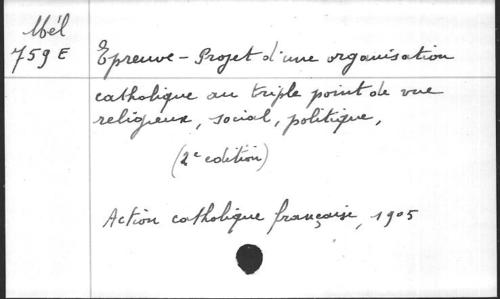 Mél
759 E
Epreuve - Projet d'une organisation
catholique au triple point de vue
religieux, social, politique,
(2e edition)
Action catholique française, 1905